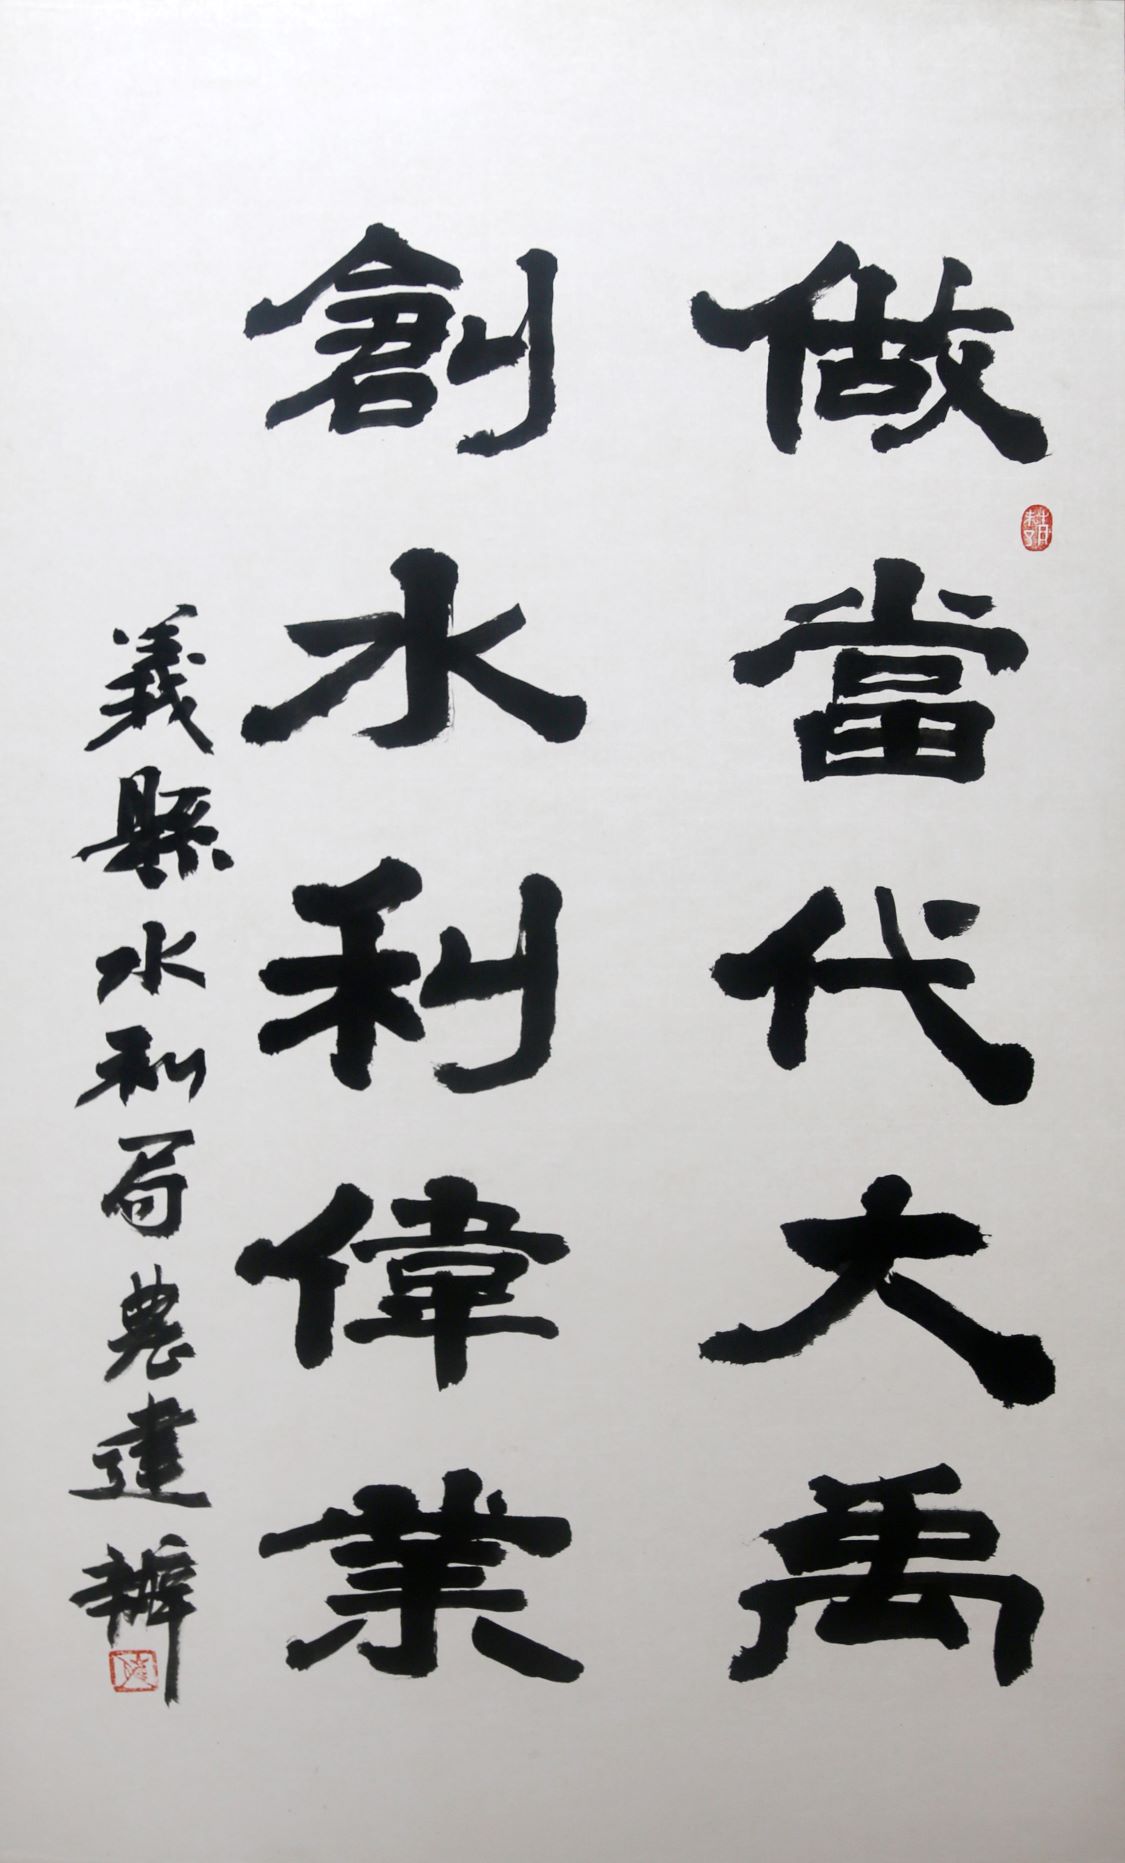 做當代大禹
創水利偉業
義縣水利局農建辦